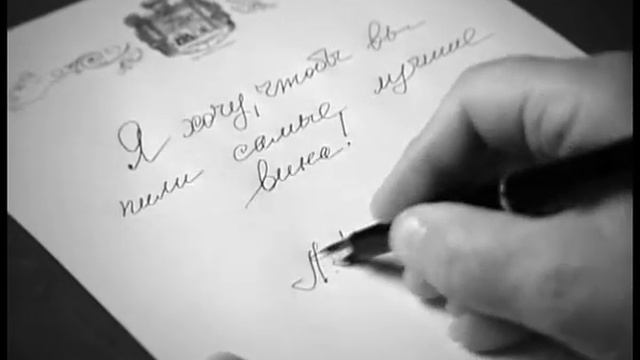 Я хочу, чтобы вы
пили самые лучшие
вина!